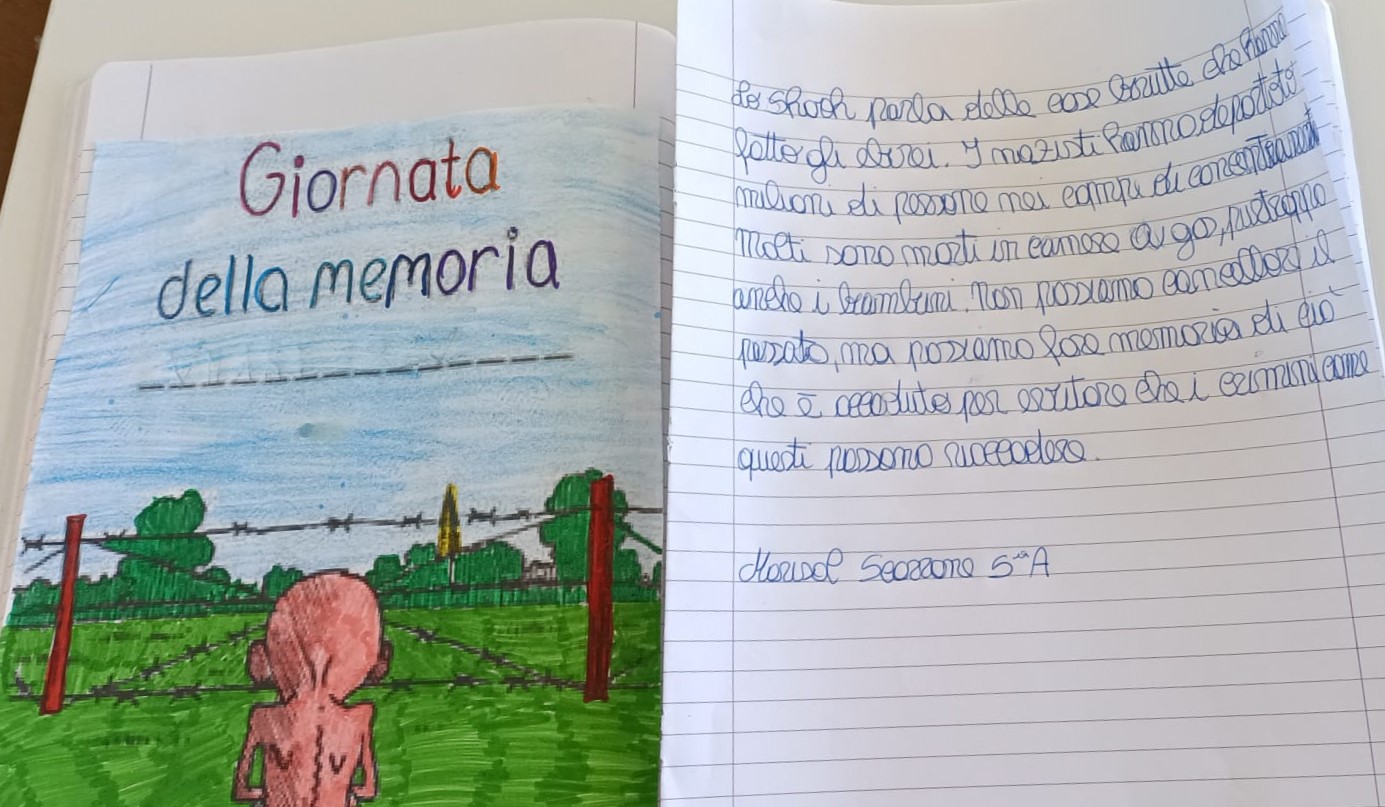 Giornata
della memoria
La shoah parla delle cose brutte che hanno
fatto gli
I nazisti hanno deportato
milioni di persone nei campi di concentramento
Molti sono morti in camere a gas, purtroppo
anche i bambini. Non possiamo cancellare il
passato, ma possiamo fare memoria di ciò
che è accaduto per evitare che i crimini come
questi possano succedere.
5ªA